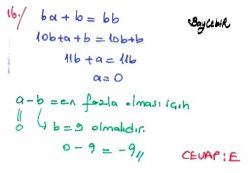 16./ ba + b = bb
BayCebir
10b+a+b = 10b+b
11b+a = 11b
a = 0
a - b = en fazla olması için
0 b = 9 olmalıdır.
0 - 9 = -9//
CEVAP: E